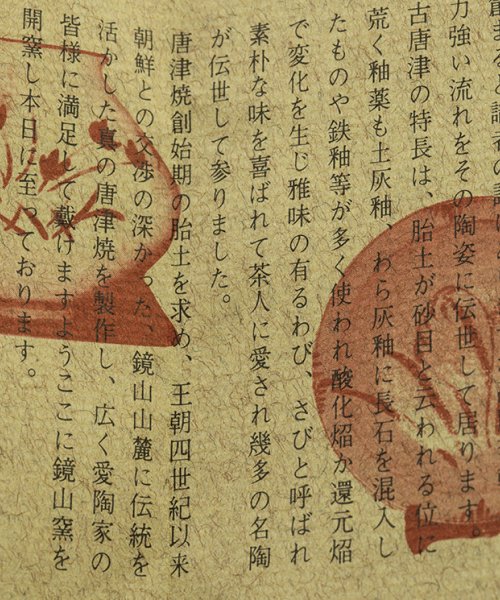 力強い流れをその陶姿に伝世して居ります。
古唐津の特長は、胎土が砂目と云われる位に
荒く釉薬も土灰釉、わら灰釉に長石を混入し
たものや鉄釉等が多く使われ酸化焔か還元焔
で変化を生じ雅味の有るわび、さびと呼ばれ
素朴な味を喜ばれて茶人に愛され幾多の名陶
が伝世して参りました。
唐津焼創始期の胎土を求め、王朝四世紀以来
朝鮮との交渉の深かった、鏡山山麓に伝統を
活かした真の唐津焼を製作し、広く愛陶家の
皆様に満足して戴けますようここに鏡山窯を
開窯し本日に至っております。